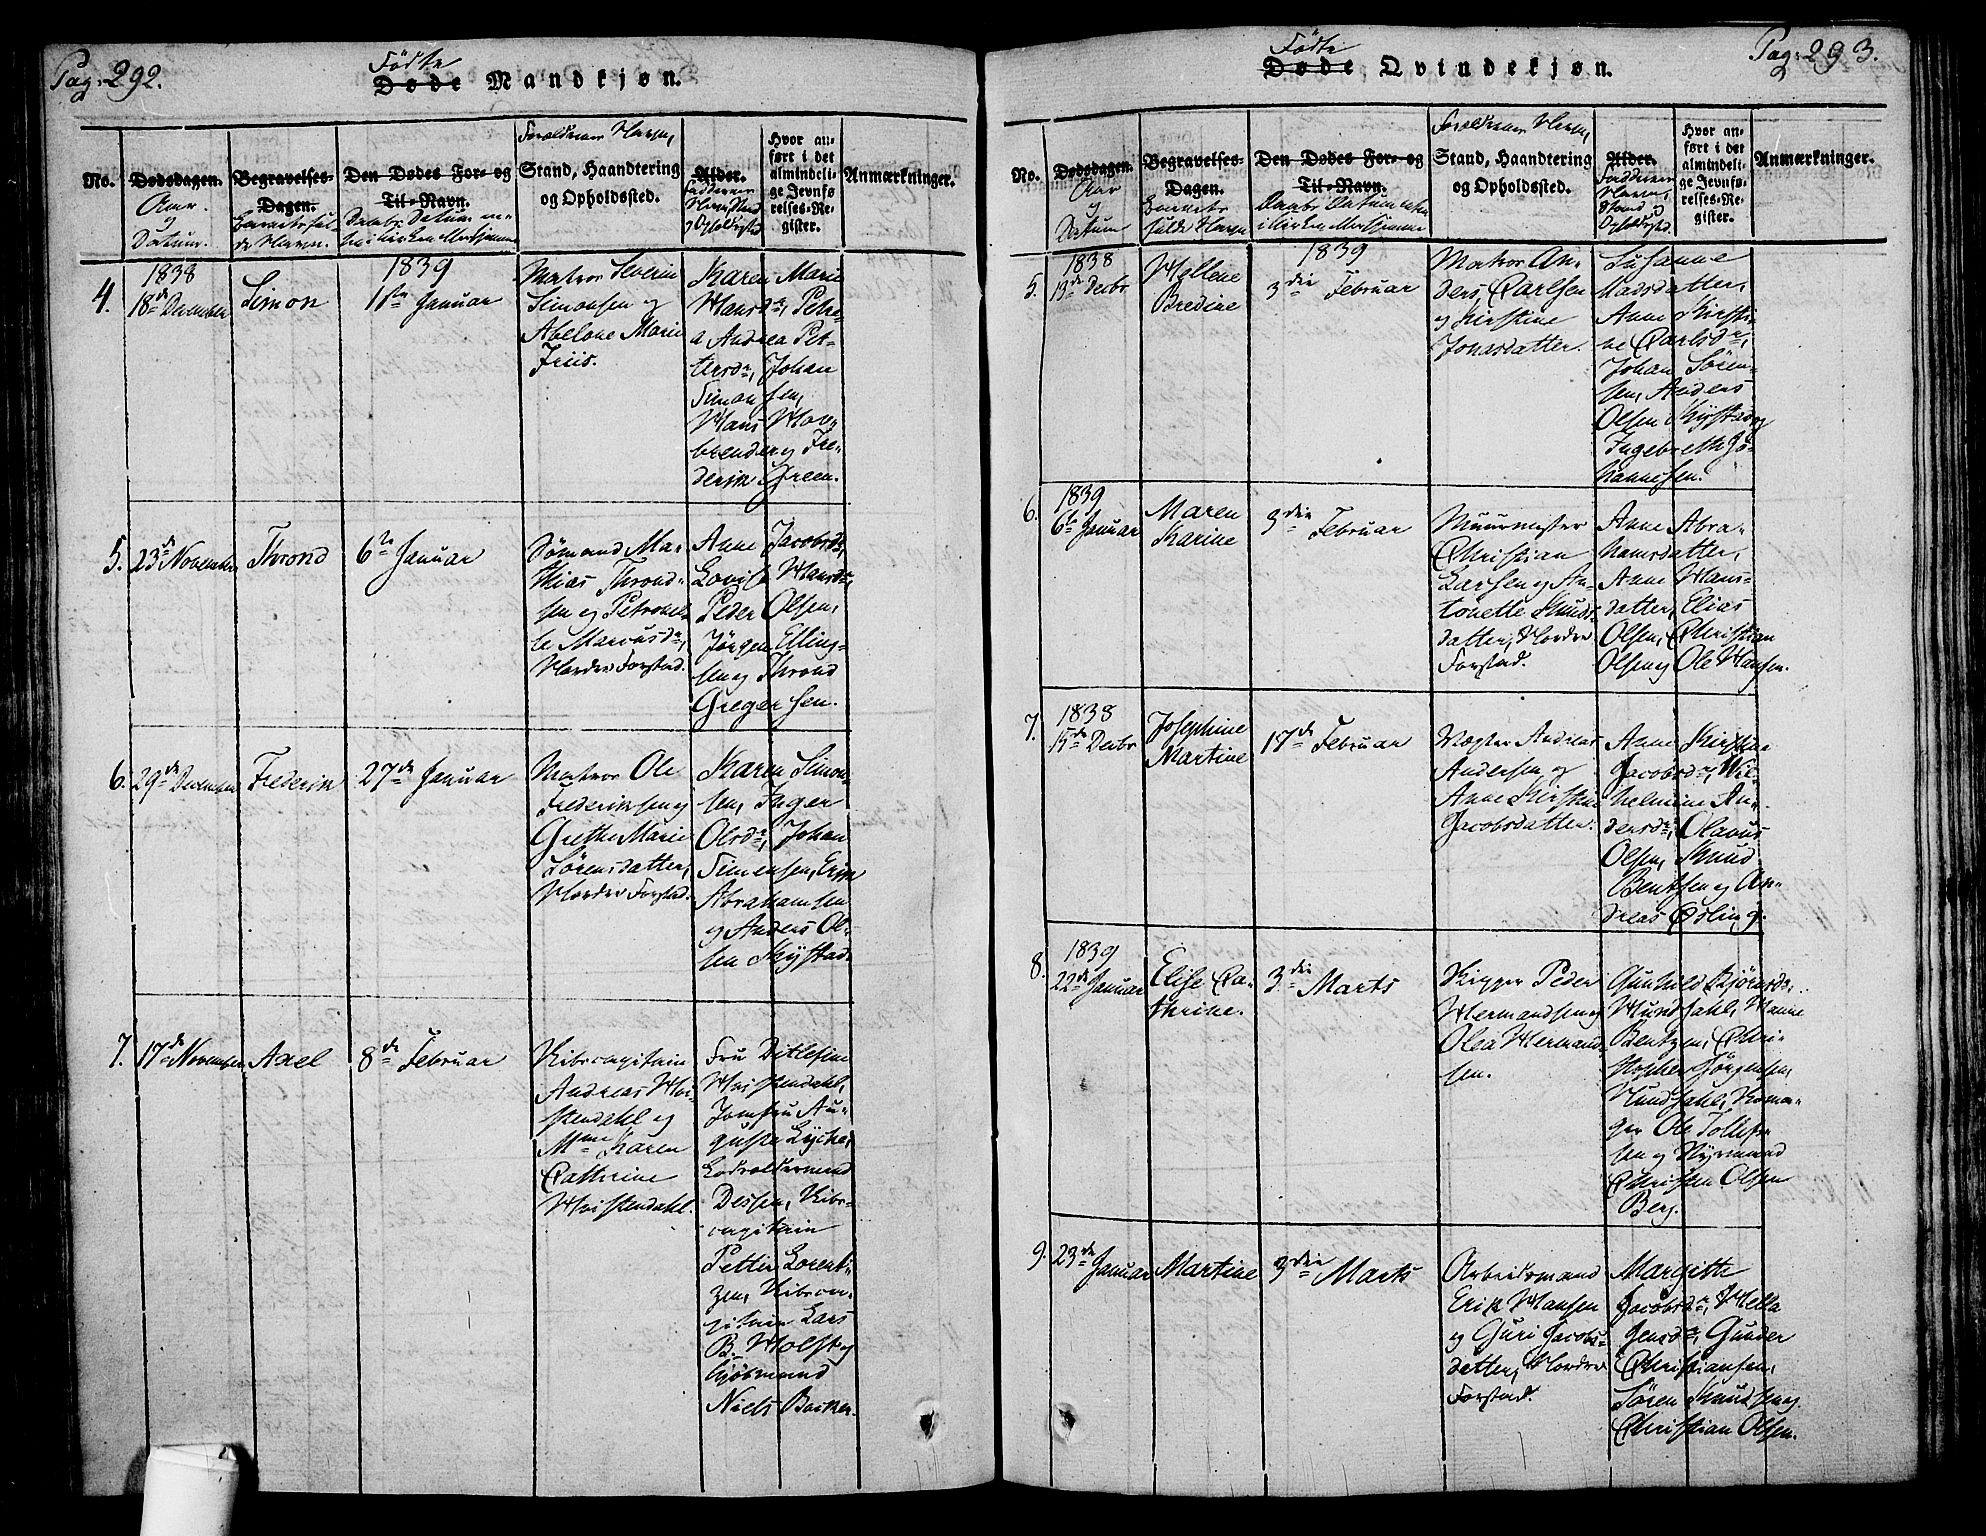 Pag: 292.
Fødte
Døde Mandkjøn.
No.
Dødsdagen.
Aar
og
Datum.
Begravelses-
Dagen.
Barnets ful-
de Navn.
Den Dødes For- og
Til-Navn.
Daabs Datum en-
Forældrenes Navn,
Stand, Haandtering
og Opholdssted.
Alder.
Faddernes
Navn, Stand
og Opholdssted
Hvor an-
ført i det
almindeli-
ge Jevnfø-
relses-Re-
gister.
Anmærkninger.
4.
1838
18de December
Simon
1839
1ste Januar
Matros Severin
Simonsen og
Abelone Marie
Friis.
Karen Marie
Hansdr, Petre-
a Andrea Pet-
tersdr, Johan
Simonsen,
Hans Hav-
brender og Fre-
derik Green.
5.
23de November
Thrond
6te Januar
Sømand Ma-
thias Thrond-
sen og Petronel-
le Marcusdr,
Nordre Forstad.
Anne Jacobsdr,
Lovise Hansdr,
Peder Olsen,
Jørgen Elling-
sen og Thrond
Gregersen.
6.
29de December
Frederik
27de Januar
Matros Ole
Frederiksen og
Grethe Marie
Sørensdatter,
Nordre Forstad.
Karen Simon-
sen, Inger
Olsdr, Johan
Simensen, Erik
Abrahamsen
og Anders Ol-
sen Kystad.
7.
17de November
Axel
8de Februar
Skibscapitain
Andreas Hvi-
stendahl og
Mme Karen
Cathrine
Hvistendahl.
Fru Ditlefine
Hvistendahl,
Jomfru Au-
gusta Lyche,
Lodsoldermand
Dessen, Skibs-
capitain
Petter Lorent-
zen, Skibsca-
pitain Lars
B. Holst og
Kjøbmand
Niels Backer.
Pag: 293.
Fødte
Døde Qvindekjøn.
No.
Dødsdagen.
Aar
og
Datum
Begravelses-
Dagen.
Barnets
fulde Navn
Den Dødes For- og
Til-Navn.
Daabs Datum enten
i Kirken eller hjemme
Forældrenes Navn,
Stand, Haandtering
og Opholdssted.
Alder.
Faddernes
Navn,
Stand og
Opholdssted.
Hvor an-
ført i det
almindeli-
ge Jevnfø-
relses-Re-
gister.
Anmærkninger.
5.
1838
13de Decbr
Hellene
Bredine
1839
3die Februar
Matros An-
ders Carlsen
og Kirstine
Jonasdatter.
Susanne
Madsdatter,
Anne Kirsti-
ne Carlsdr,
Johan Søren-
sen, Anders
Olsen Kystad og
Ingebreth Jo-
hannesen.
6.
1839
6te Januar
Maren
Karine
3die Februar
Muurmester
Christian
Larsen og An-
tonette Knuds-
datter, Nordre
Forstad.
Anne Abra-
hamsdatter,
Anne Hans-
datter, Elias
Olsen, Christian
Olsen og Ole Hansen.
7.
1838
15de Decbr
Josephine
Martine
17de Februar
Vægter Andreas
Andersen og
Anne Kirstine
Jacobsdatter.
Anne Kirstine
Jacobsdr, Wil-
helmine An-
dersdr, Olavus
Olsen, Knud
Bentsen og An-
dreas Østling.
8.
1839
22de Januar
Elise Ca-
thrine.
3die Marts
Skipper Peder
Hermandsen og
Olea Hermand-
sen.
Gunhild Bjørnsdr,
Hundsahl, Hanne
Bentzen, Chri-
stopher Jørgensen,
Hundsahl, Skoma-
ger Ole Tollef-
sen og Styrmand
Christen Olsen
Berg.
9.
23de Januar
Martine
3die Marts
Arbeidsmand
Erik Hansen
og Guri Jacobs-
datter, Nordre
Forstad.
Margithe
Jacobsdr, Hella
Jensdr, Gunder
Christiansen,
Søren Knudsen og
Christian Olsen.